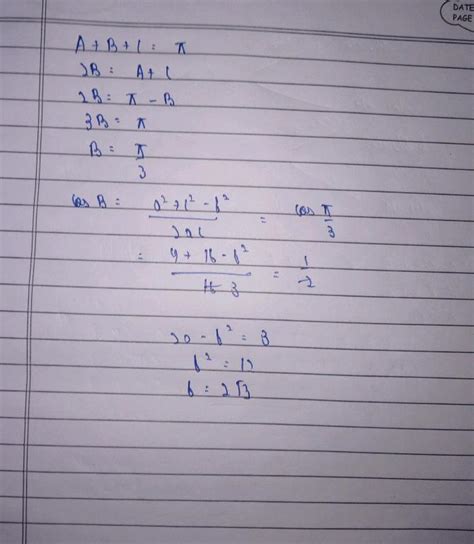 DATE
PAGE
A + B + C = π
2B = A + C
2B = π - B
3B = π
B = π/3
cos B = (a² + c² - b²)/2ac = cos π/3
= (4 + 16 - b²)/16 = 1/2
20 - b² = 8
b² = 12
b = 2√3